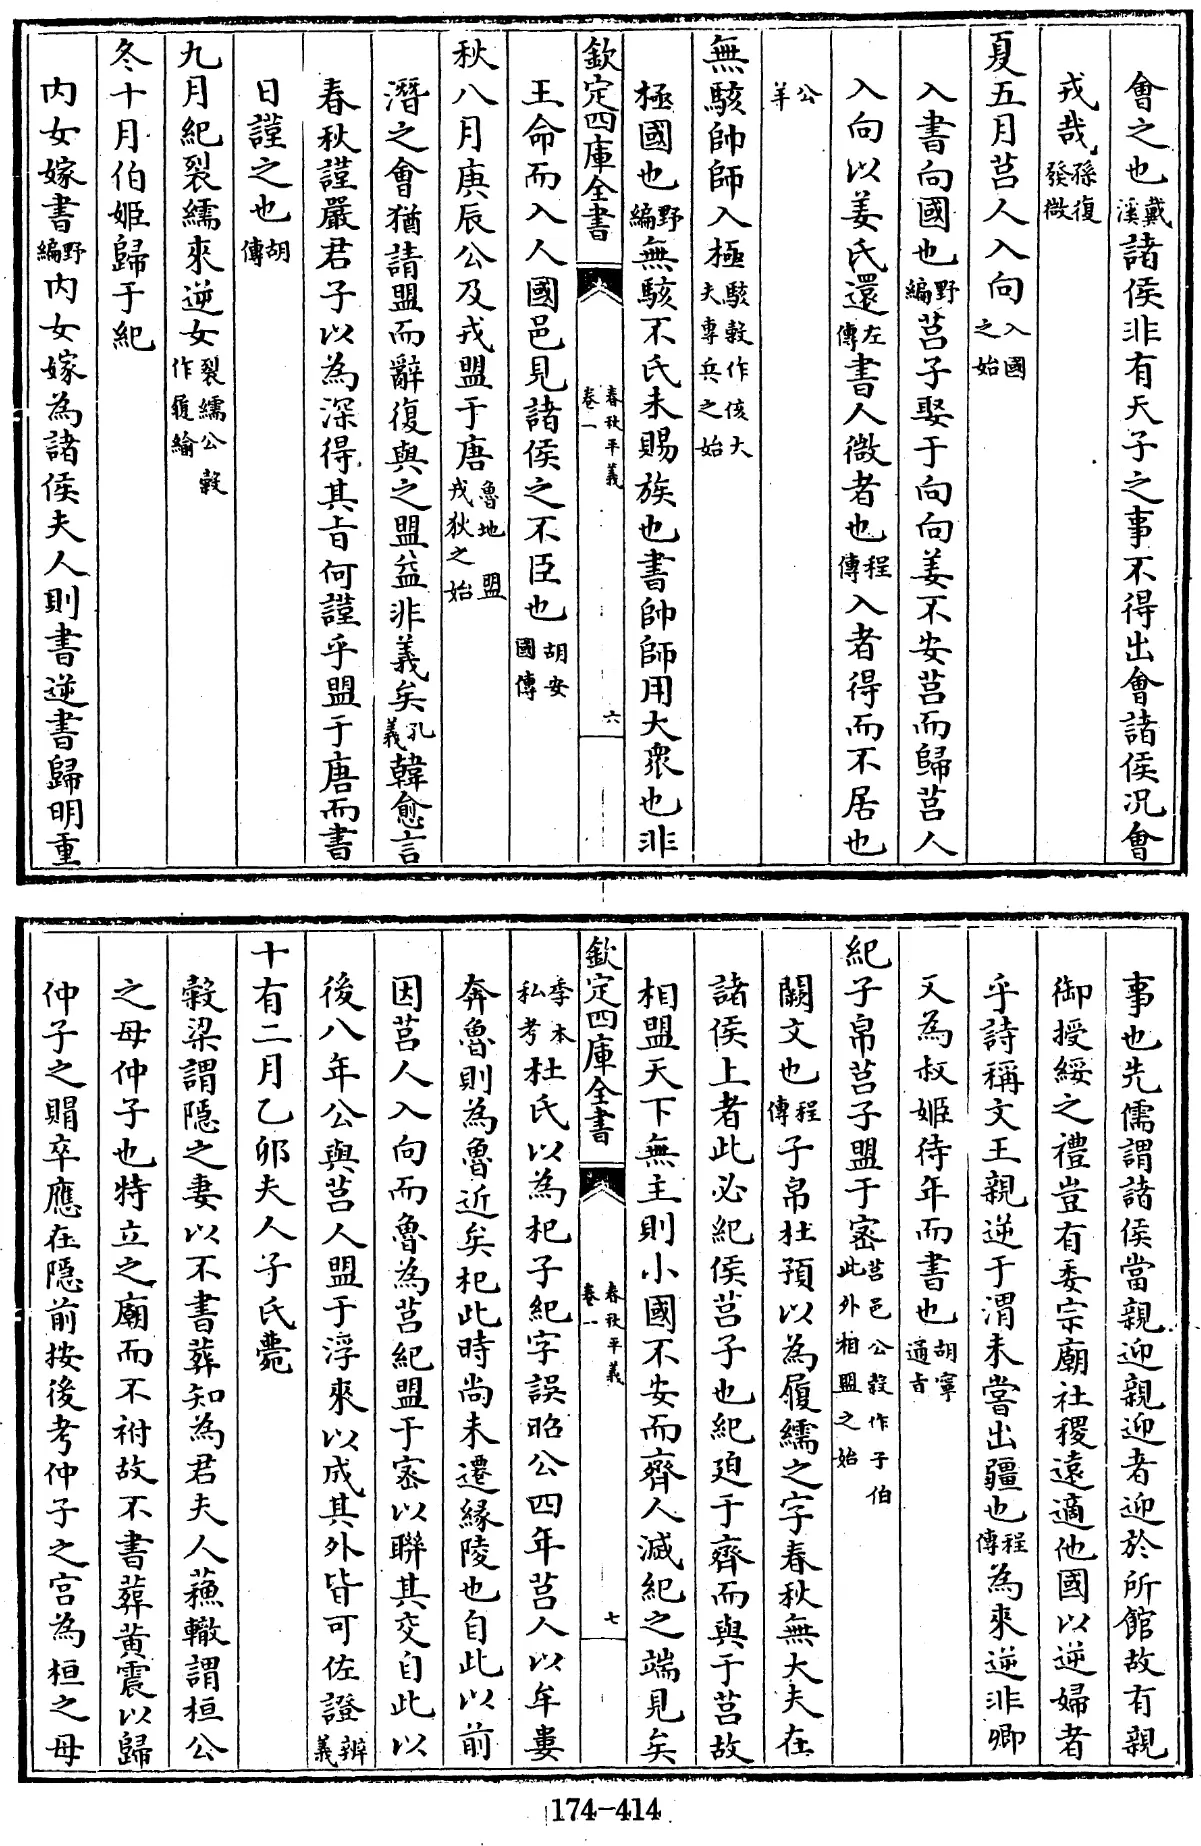 會之也戴溪諸侯非有天子之事不得出會諸侯况會
戎哉孫復發微
夏五月莒人入向入國之始
入書向國也野編莒子娶于向向姜不安莒而歸莒人
入向以姜氏還左傳書人微者也程傳入者得而不居也
公羊
無駭帥師入極駭穀作侅大夫專兵之始
極國也野編無駭不氏未賜族也書帥師用大衆也非
欽定四庫全書
春秋平義
卷一
六
王命而入人國邑見諸侯之不臣也胡安國傳
秋八月庚辰公及戎盟于唐魯地盟戎狄之始
潛之會猶請盟而辭復與之盟益非義矣孔義韓愈言
春秋謹嚴君子以為深得其旨何謹乎盟于唐而書
日謹之也胡傳
九月紀裂繻來逆女裂繻公穀作履緰
冬十月伯姬歸于紀
内女嫁書野編内女嫁為諸侯夫人則書逆書歸明重
事也先儒謂諸侯當親迎親迎者迎於所館故有親
御授綏之禮豈有委宗廟社稷遠適他國以逆婦者
乎詩稱文王親逆于渭未嘗出疆也程傳為來逆非卿
又為叔姬待年而書也胡寧通旨
紀子帛莒子盟于密莒邑公穀作子伯此外相盟之始
闕文也程傳子帛杜預以為履繻之字春秋無大夫在
諸侯上者此必紀侯莒子也紀廹于齊而與于莒故
相盟天下無主則小國不安而齊人滅紀之端見矣
欽定四庫全書
春秋平義
卷一
七
季本私考杜氏以為杞子紀字誤昭公四年莒人以牟婁
奔魯則為魯近矣杞此時尚未遷緣陵也自此以前
因莒人入向而魯為莒紀盟于密以聯其交自此以
後八年公與莒人盟于浮來以成其外皆可佐證辨義
十有二月乙卯夫人子氏薨
穀梁謂隱之妻以不書葬知為君夫人蘓轍謂桓公
之母仲子也特立之廟而不祔故不書葬黄震以歸
仲子之賵卒應在隱前按後考仲子之宫為桓之母
174-414